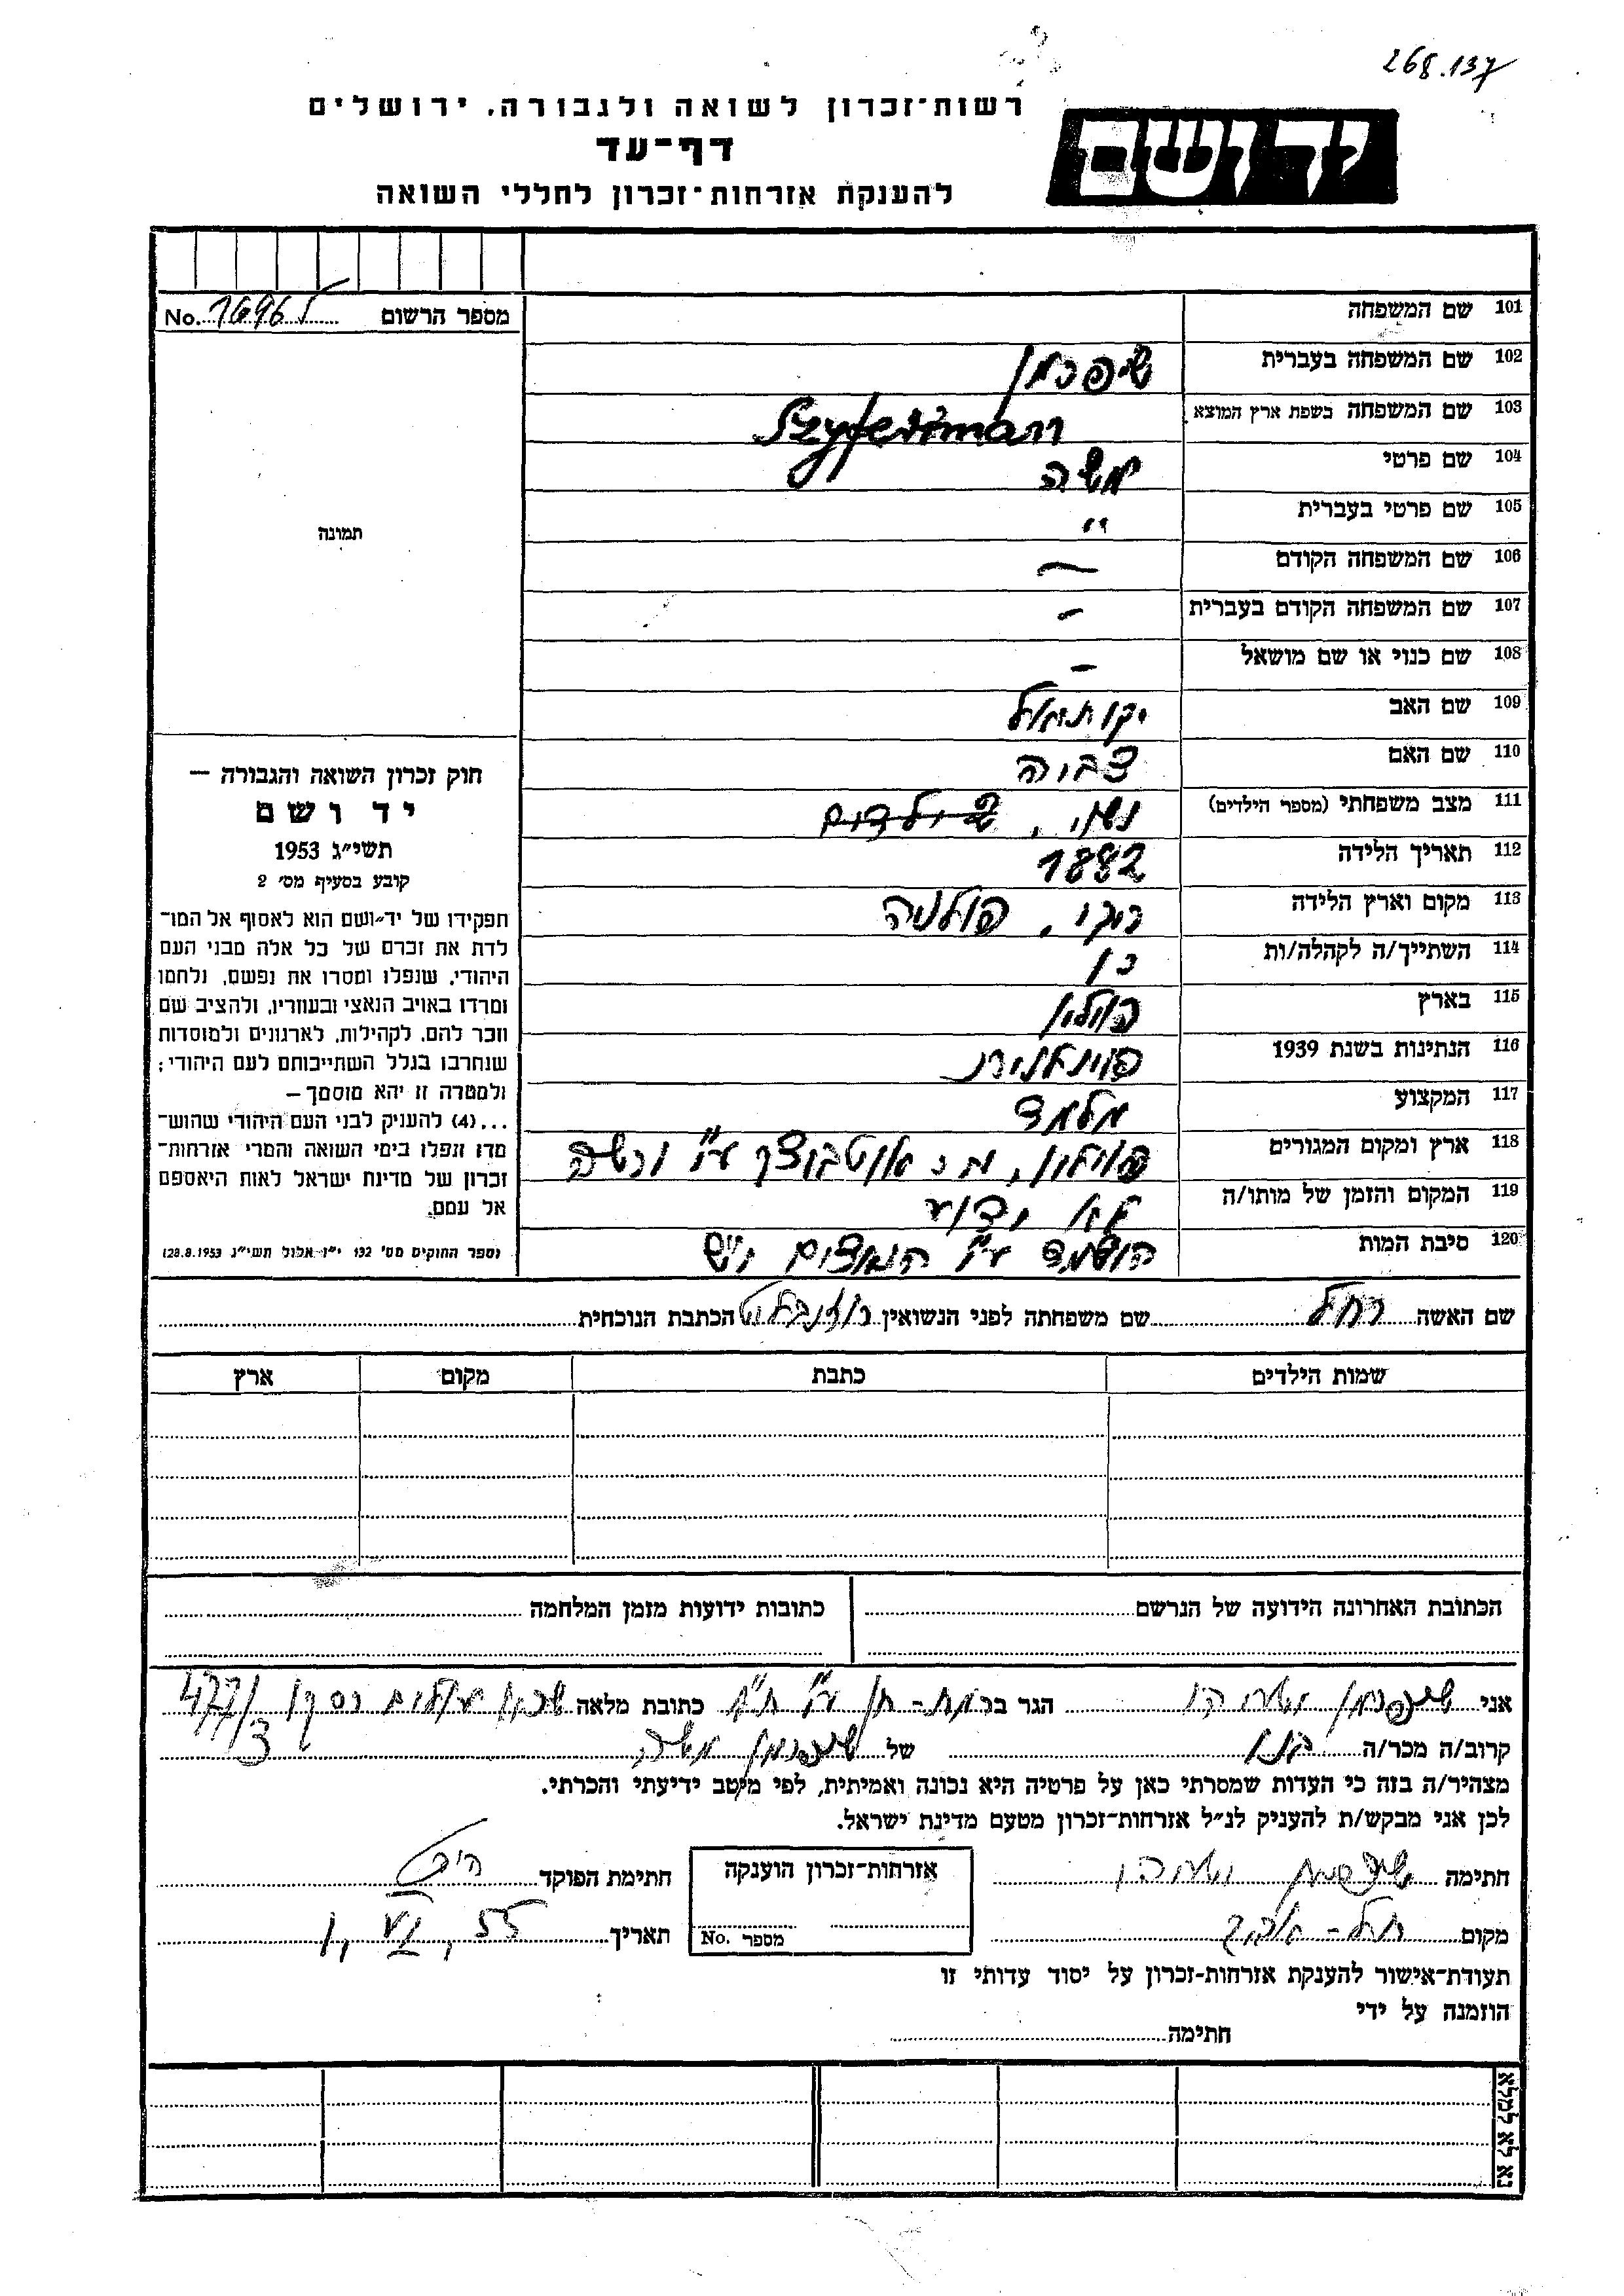 268.137
רשות-זכרון לשואה ולגבורה, ירושלים
יד ושם
דף-עד
להענקת אזרחות-זכרון לחללי השואה
מספר הרשום No.
101 שם המשפחה
102 שם המשפחה בעברית שיפרמן
103 שם המשפחה בשפת ארץ המוצא
104 שם פרטי משה
105 שם פרטי בעברית "
106 שם המשפחה הקודם –
107 שם המשפחה הקודם בעברית –
108 שם כנוי או שם מושאל –
109 שם האב יקותיאל
110 שם האם צביה
111 מצב משפחתי (מספר הילדים) נשוי,
112 תאריך הלידה 1882
113 מקום וארץ הלידה פולניה
114 השתייך/ה לקהלה/ות כן
115 בארץ פולין
116 הנתינות בשנת 1939 פולנית
117 המקצוע מלמד
118 ארץ ומקום המגורים פולין, אוטבוצק ע"י ורשה
119 המקום והזמן של מותו/ה לא ידוע
120 סיבת המות הושמד ע"י הנאצים ימ"ש
תמונה
חוק זכרון השואה והגבורה –
יד ושם
תשי"ג 1953
קובע בסעיף מס' 2
תפקידו של יד-ושם הוא לאסוף אל המו-
לדת את זכרם של כל אלה מבני העם
היהודי, שנפלו ומסרו את נפשם, נלחמו
ומרדו באויב הנאצי ובעוזריו, ולהציב שם
וזכר להם, לקהילות, לארגונים ולמוסדות
שנחרבו בגלל השתייכותם לעם היהודי;
ולמטרה זו יהא מוסמך –
...(4) להעניק לבני העם היהודי שהוש-
מדו ונפלו בימי השואה והמרי אזרחות-
זכרון של מדינת ישראל לאות היאספם
אל עמם.
(ספר החוקים מס' 132 י"ז אלול תשי"ג 28.8.1953)
שם האשה רחל שם משפחתה לפני הנשואין הכתבת הנוכחית
שמות הילדים כתבת מקום ארץ
הכתובת האחרונה הידועה של הנרשם כתובות ידועות מזמן המלחמה
אני שיפרמן הגר ברמת-גן ע"י ת"א כתובת מלאה שכון 477/3
קרוב/ה מכר/ה בנו של שיפרמן משה
מצהיר/ה בזה כי העדות שמסרתי כאן על פרטיה היא נכונה ואמיתית, לפי מיטב ידיעתי והכרתי.
לכן אני מבקש/ת להעניק לנ"ל אזרחות-זכרון מטעם מדינת ישראל.
חתימה שיפרמן אזרחות-זכרון הוענקה חתימת הפוקד
מקום תל-אביב מספר No. תאריך 1, VI, 55
תעודת-אישור להענקת אזרחות-זכרון על יסוד עדותי זו
הוזמנה על ידי
חתימה
נא לא למלא